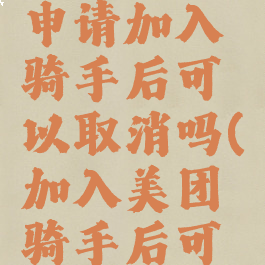 申请加入
骑手后可
以取消吗(
加入美团
骑手后可